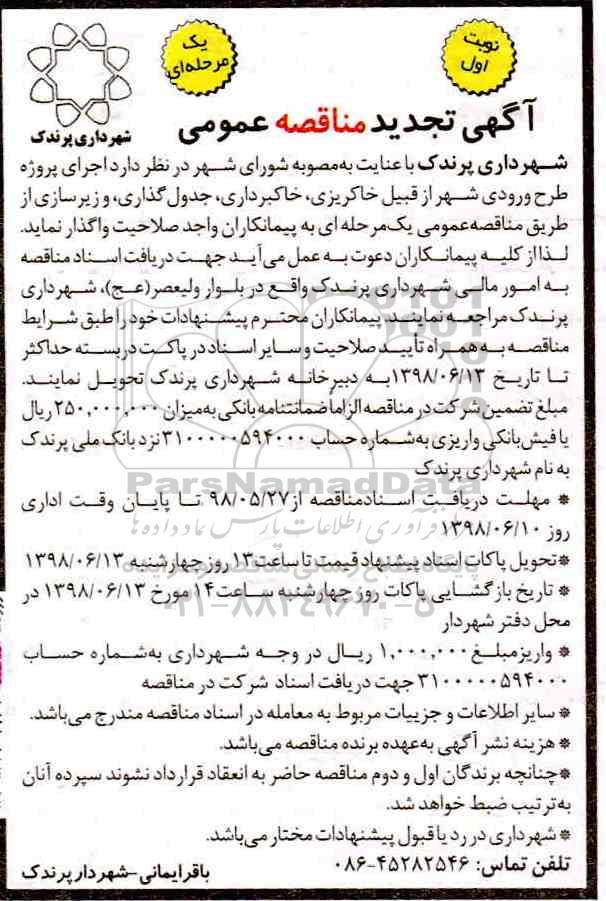 نوبت
اول
یک
مرحله‌ای
شهرداری پرندک
آگهی تجدید مناقصه عمومی
شهرداری پرندک با عنایت به‌مصوبه شورای شهر در نظر دارد اجرای پروژه
طرح ورودی شهر از قبیل خاکریزی، خاکبرداری، جدول‌گذاری، و زیرسازی از
طریق مناقصه‌عمومی یک‌مرحله ای به پیمانکاران واجد صلاحیت واگذار نماید.
لذا از کلیه پیمانکاران دعوت به عمل می‌آید جهت دریافت اسناد مناقصه
به امور مالی شهرداری پرندک واقع در بلوار ولیعصر(عج)، شهرداری
پرندک مراجعه نمایند. پیمانکاران محترم پیشنهادات خود را طبق شرایط
مناقصه به همراه تأیید صلاحیت و سایر اسناد در پاکت دربسته حداکثر
تا تاریخ ۱۳۹۸/۰۶/۱۳به دبیرخانه شهرداری پرندک تحویل نمایند.
مبلغ تضمین شرکت در مناقصه الزاماً ضمانتنامه بانکی به‌میزان ۲۵۰,۰۰۰,۰۰۰ ریال
یا فیش‌بانکی واریزی به‌شماره حساب ۳۱۰۰۰۰۰۵۹۴۰۰۰ نزد بانک ملی پرندک
به نام شهرداری پرندک
* مهلت دریافت اسنادمناقصه از ۹۸/۰۵/۲۷ تا پایان وقت اداری
روز ۱۳۹۸/۰۶/۱۰
*تحویل پاکات اسناد پیشنهاد قیمت تا ساعت ۱۳ روز چهارشنبه ۱۳۹۸/۰۶/۱۳
* تاریخ بازگشایی پاکات روز چهارشنبه ساعت۱۴ مورخ ۱۳۹۸/۰۶/۱۳ در
محل دفتر شهردار
* واریزمبلغ ۱,۰۰۰,۰۰۰ ریال در وجه شهرداری به‌شماره حساب
۳۱۰۰۰۰۰۵۹۴۰۰۰ جهت دریافت اسناد شرکت در مناقصه
* سایر اطلاعات و جزییات مربوط به معامله در اسناد مناقصه مندرج می‌باشد.
* هزینه نشر آگهی به‌عهده برنده مناقصه می‌باشد.
*چنانچه برندگان اول و دوم مناقصه حاضر به انعقاد قرارداد نشوند سپرده آنان
به‌ترتیب ضبط خواهد شد.
* شهرداری در رد یا قبول پیشنهادات مختار می‌باشد.
تلفن تماس: ۴۵۲۸۲۵۴۶-۰۸۶
باقر ایمانی-شهردار پرندک
ParsNamadData
۰۲۱-۸۸۳۴۹۶۷۰-۵